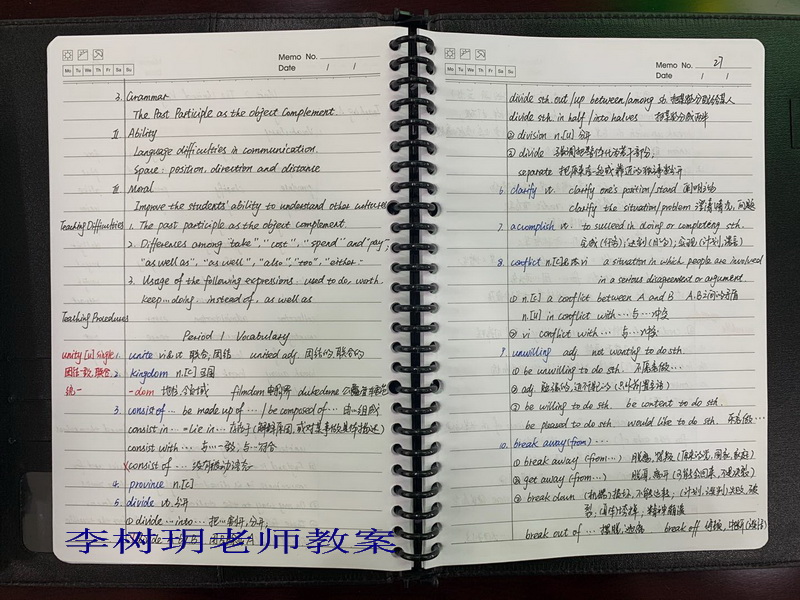 Memo No.
Mo Tu We Th Fr Sa Su
Date / /
3. Grammar
The Past Participle as the Object Complement.
II Ability
Language difficulties in communication.
Space: position, direction and distance
III Moral
Improve the students' ability to understand other cultures
Teaching Difficulties 1. The past participle as the object complement.
2. Differences among "take", "cost", "spend" and "pay",
"as well as", "as well", "also", "too", "either".
3. Usage of the following expressions. used to do, worth,
keep...doing, instead of, as well as
Teaching Procedures
Period 1 Vocabulary
unity [u] 1. unite vi & vt 联合,团结 united adj. 团结的,联合的
团结一致,联合, 2. kingdom n.[c] 王国
统一 -dom 领域 filmdom 电影界 dukedom
3. consist of... be made up of... / be composed of... 由...组成
consist in... = lie in... 在于
consist with... 与...一致,与...符合
consist of ...
4. province n.[c]
5. divide vt. 分开
① divide...into... 把...分开
李树玥老师教案
Memo No. 27
Mo Tu We Th Fr Sa Su
Date / /
divide sth. out/up between/among sb.
divide sth. in half / into halves
② division n.[u] 分开
③ divide 强调把整体分为若干部分,
separate
6. clarify vt. clarify one's position/stand 阐明立场
clarify the situation/problem 澄清情况,问题
7. acomplish vt. to succeed in doing or completing sth.
完成(任务);达到(目的);实现(计划,诺言)
8. conflict n.[c] & vi a situation in which people are involved
in a serious disagreement or argument.
① n.[c] a conflict between A and B A,B之间的矛盾
n.[u] in conflict with... 与...冲突
② vi conflict with... 与...冲突
9. unwilling adj. not wanting to do sth.
① be unwilling to do sth. 不愿意做...
② adj. 勉强的,
③ be willing to do sth. be content to do sth.
be pleased to do sth. would like to do sth. 乐意做...
10. break away (from)...
① break away (from...) 脱离,
② get away (from...) 脱离,离开
③ break down (机器)
break out of... 摆脱, break off